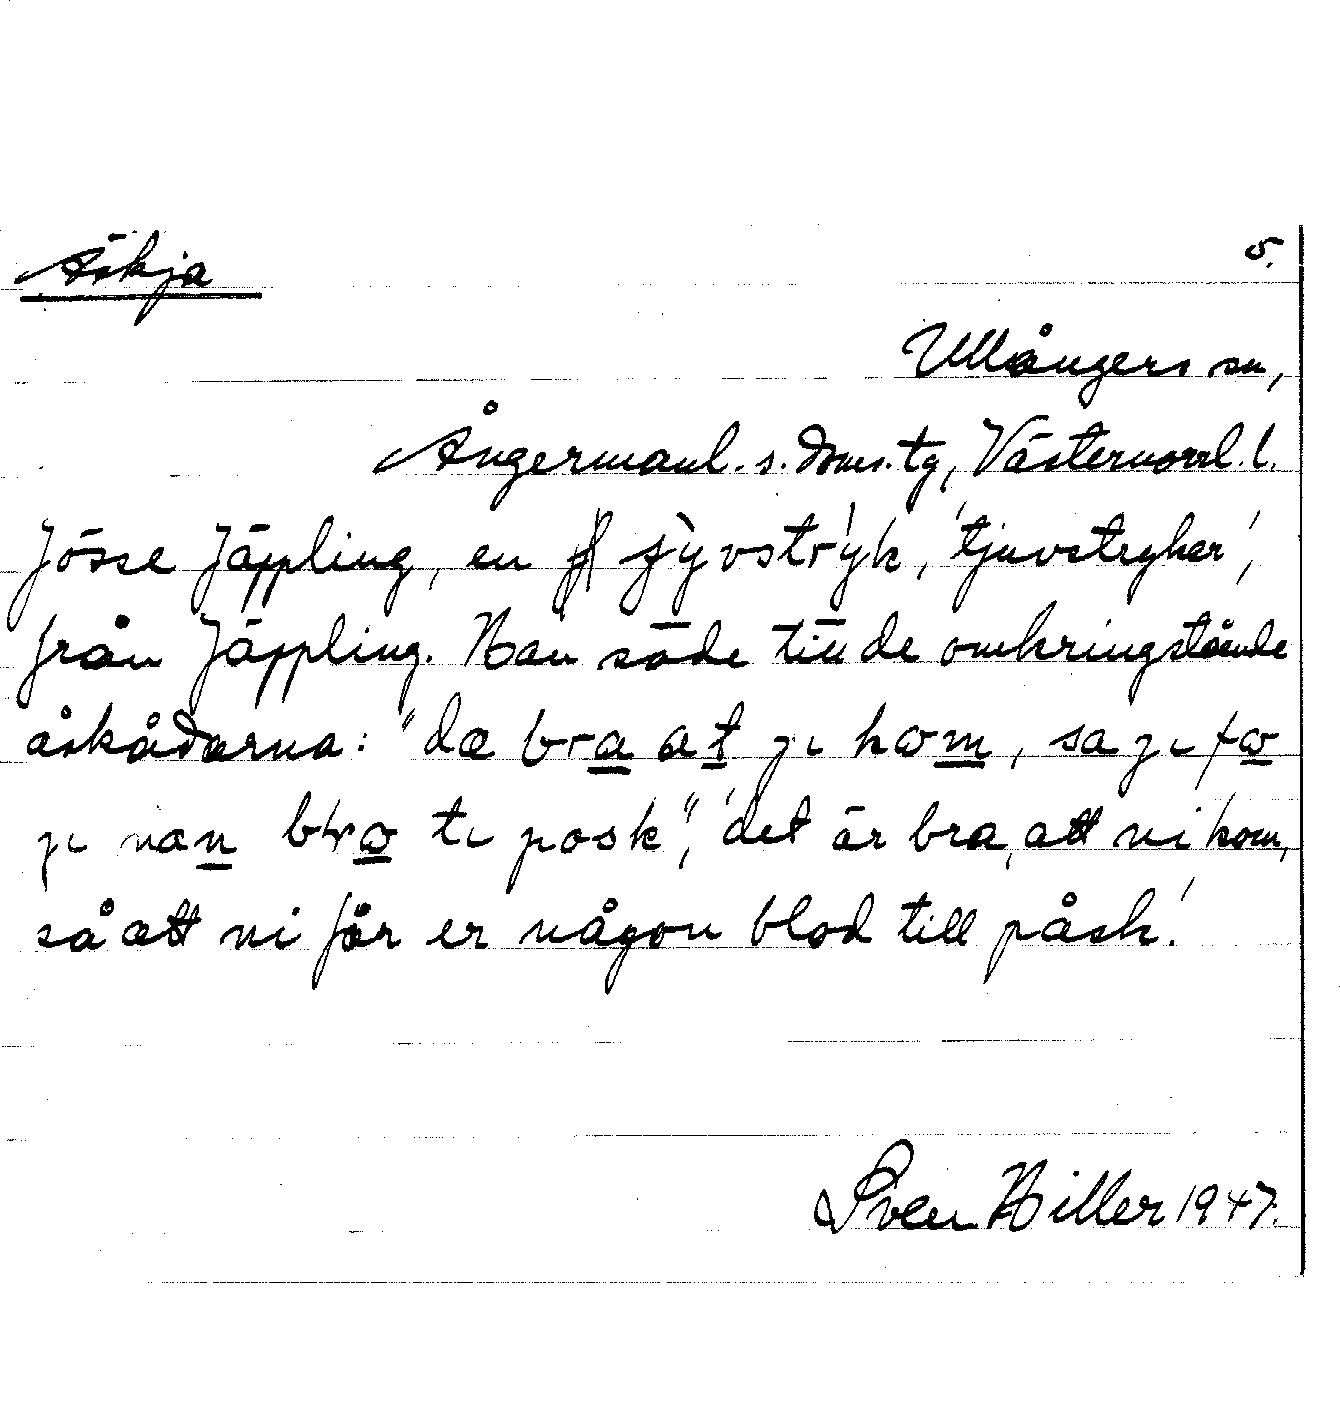 Äskja
5.
Ullångers sn,
Ångermanl. s. doms. tg, Västernorrl. l.
Jösse Jäppling, en jỳvstrýk, 'tjuvstryker',
från Jäppling. Han säde till de omkringstående
åskådarna: "dæ bra at ji kom, sa ji fo
ji nan blo ti posk", 'det är bra, att ni kom,
så att ni får er någon blod till påsk.'
Sven Hiller 1947.